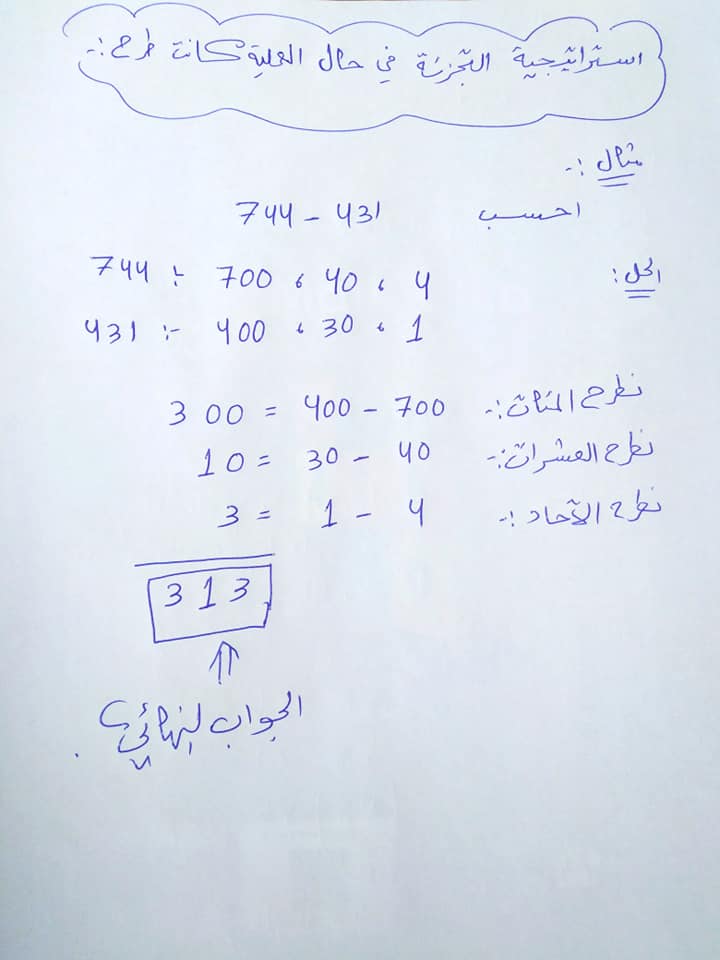 استراتيجية التجزئة في حال العملية كانت طرح :-
مثال :-
احسب 744 - 431
الحل :
744 :- 700 ، 40 ، 4
431 :- 400 ، 30 ، 1
نطرح المئات :- 700 - 400 = 300
نطرح العشرات :- 40 - 30 = 10
نطرح الآحاد :- 4 - 1 = 3
313
الجواب النهائي